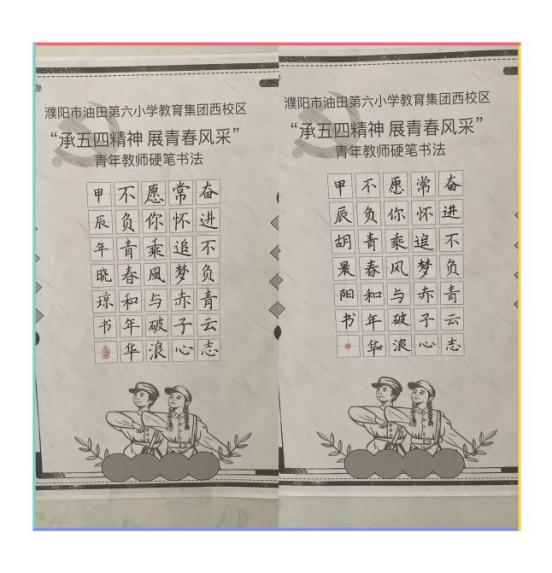 濮阳市油田第六小学教育集团西校区
“承五四精神 展青春风采”
青年教师硬笔书法
奋进不负青云志
常怀追梦赤子心
愿你乘風与破浪
不负青春和年华
甲辰年晓琼书
濮阳市油田第六小学教育集团西校区
“承五四精神 展青春风采”
青年教师硬笔书法
奋进不负青云志
常怀追梦赤子心
愿你乘风与破浪
不负青春和年华
甲辰胡阳书